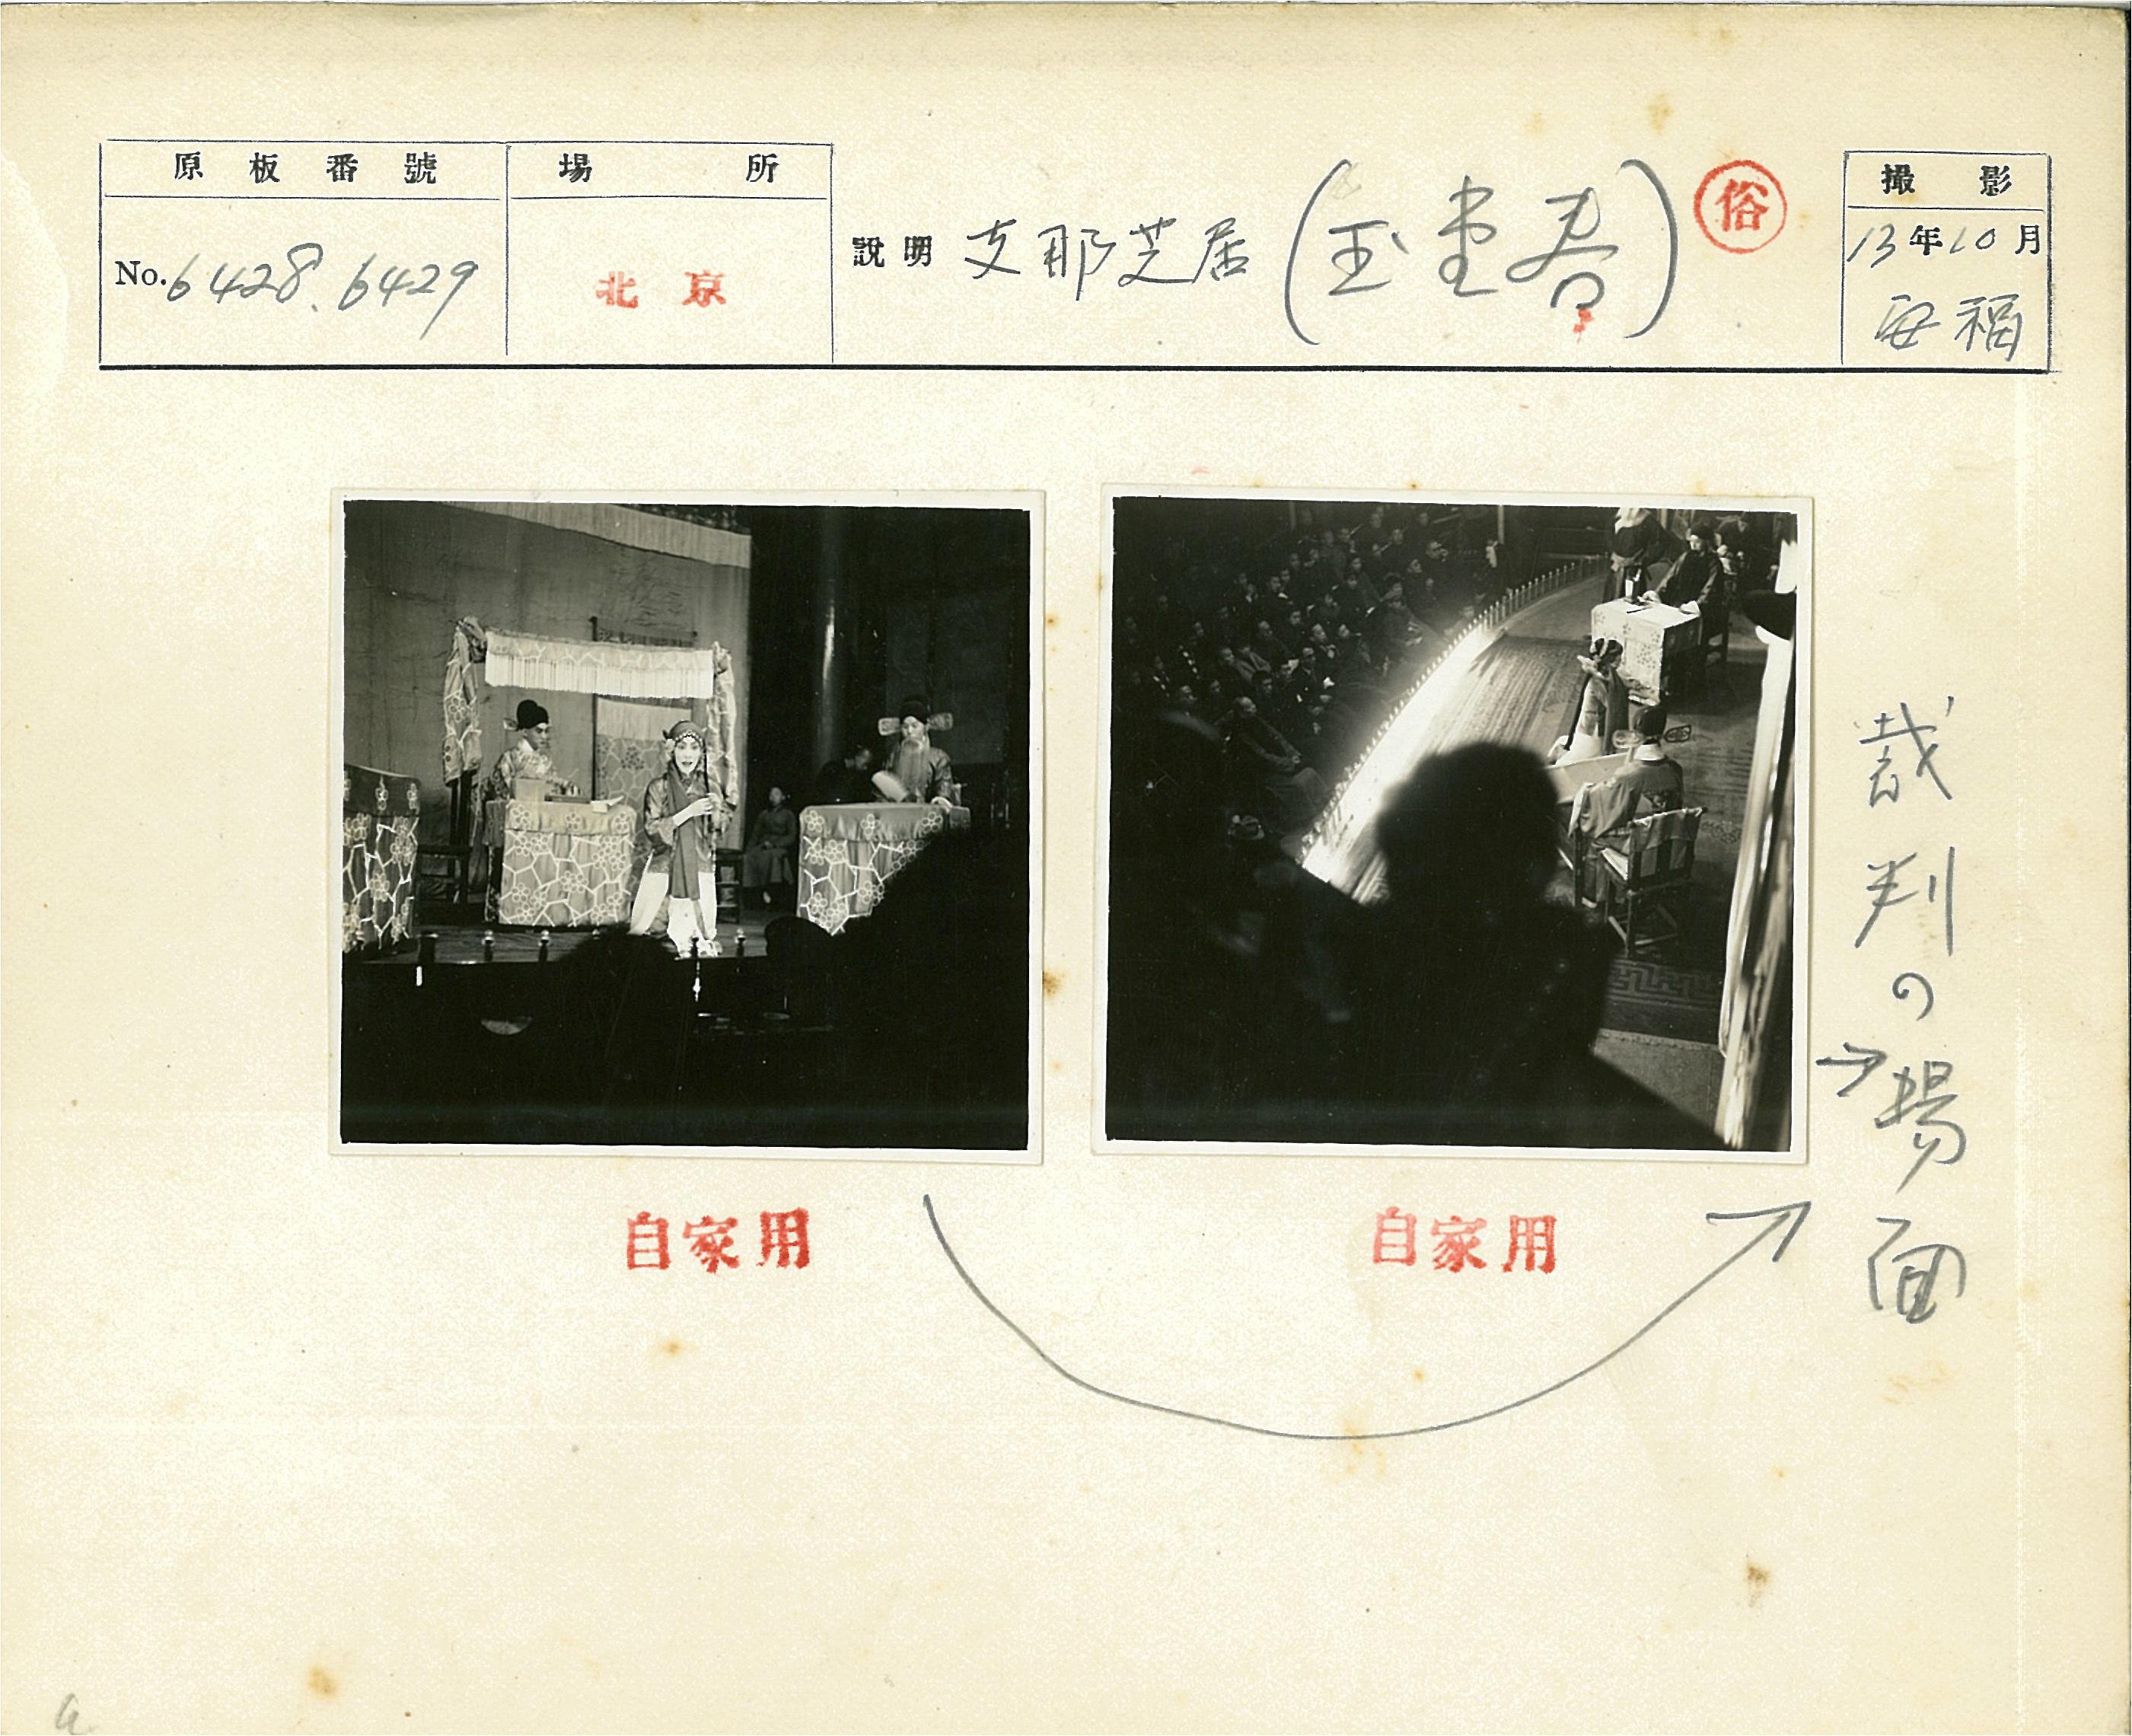 原板番號
No. 6428. 6429
場所
北京
說明 支那芝居(玉堂春)
俗
撮影
13年10月
安福
裁判の場面
自家用
自家用